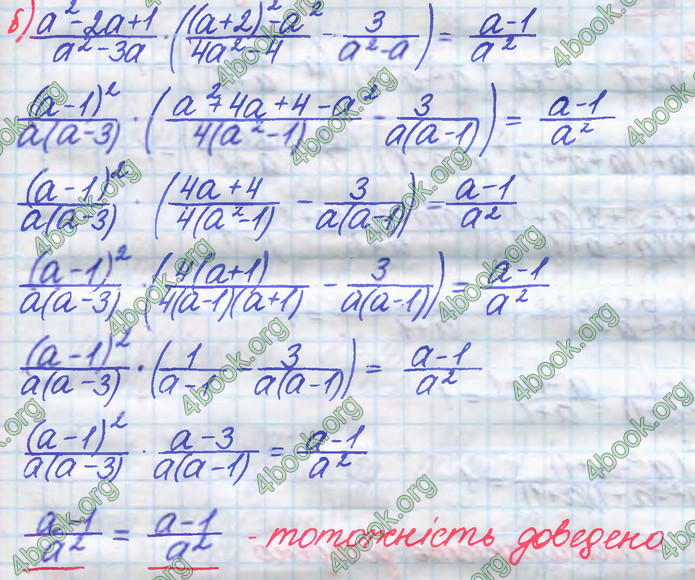 б) (a² - 2a + 1)/(a² - 3a) · (((a+2)² - a²)/(4a² - 4) - 3/(a² - a)) = (a-1)/a²
(a-1)²/(a(a-3)) · ((a² + 4a + 4 - a²)/(4(a² - 1)) - 3/(a(a-1))) = (a-1)/a²
(a-1)²/(a(a-3)) · ((4a + 4)/(4(a² - 1)) - 3/(a(a-1))) = (a-1)/a²
(a-1)²/(a(a-3)) · (4(a+1)/(4(a-1)(a+1)) - 3/(a(a-1))) = (a-1)/a²
(a-1)²/(a(a-3)) · (1/(a-1) - 3/(a(a-1))) = (a-1)/a²
(a-1)²/(a(a-3)) · (a-3)/(a(a-1)) = (a-1)/a²
(a-1)/a² = (a-1)/a² - тотожність доведено
4book.org